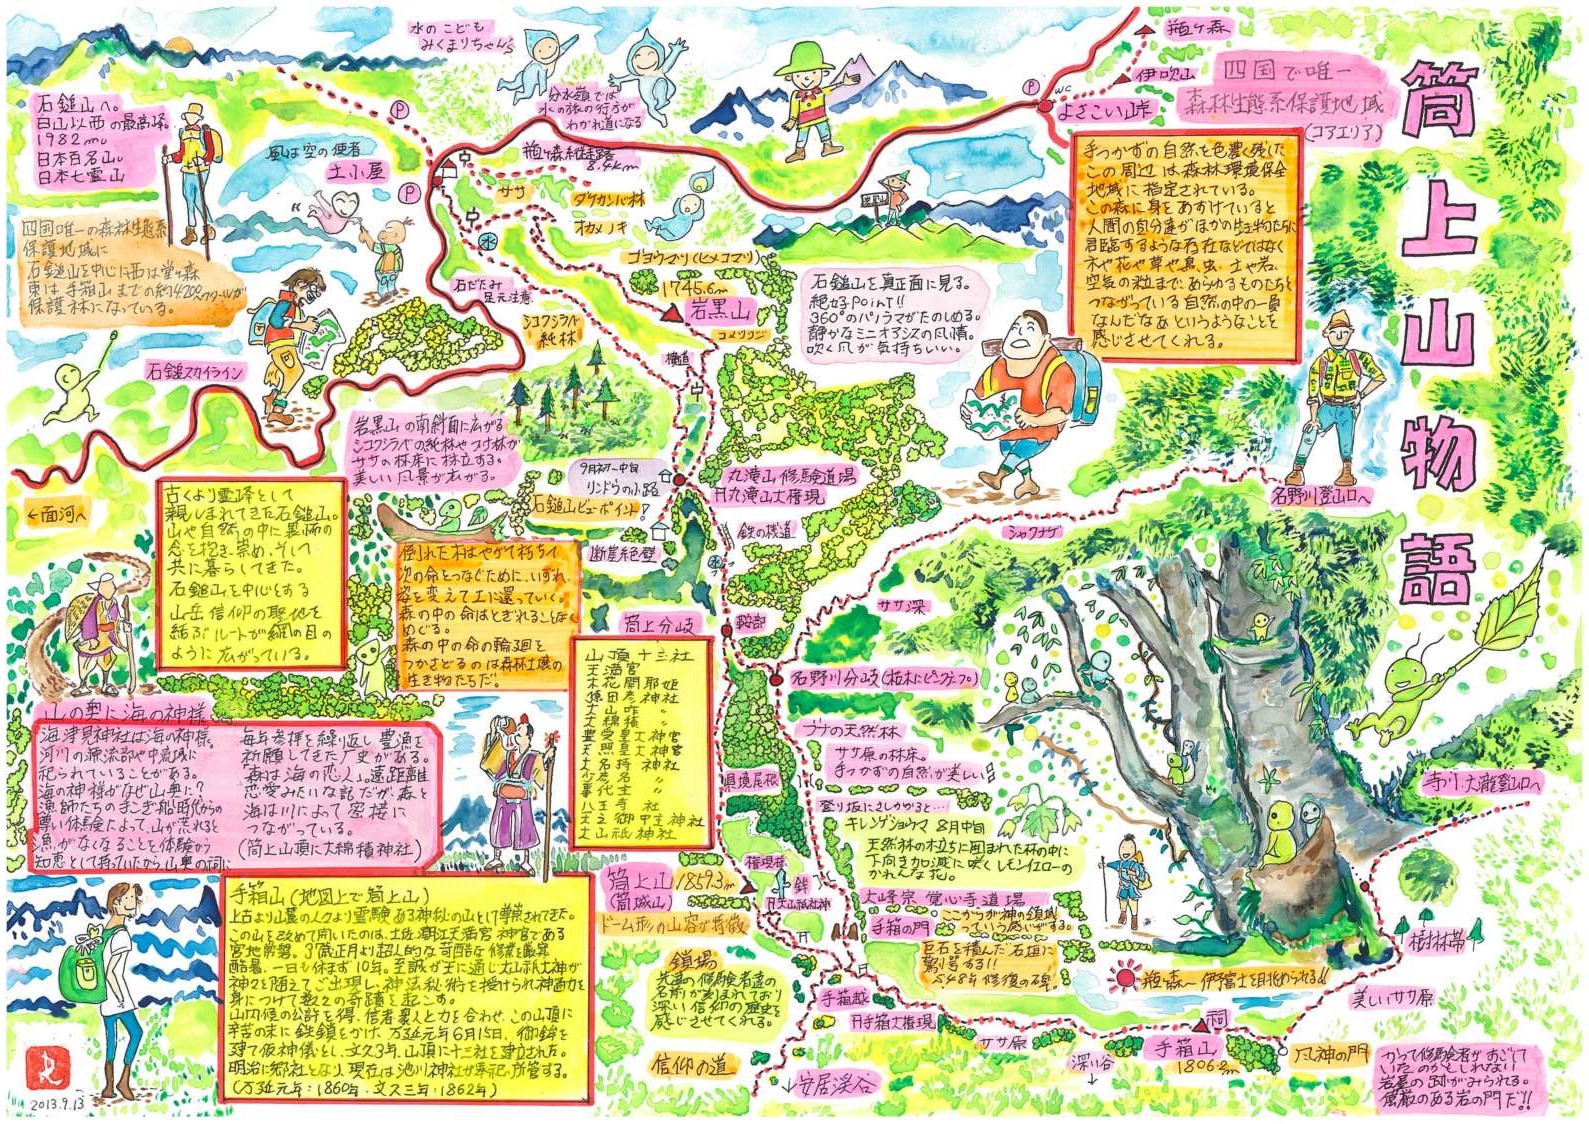 筒上山物語
水のこども
みくまりちゃんら
分水嶺では
水の旅の行方が
わかれ道になる
瓶ヶ森
伊吹山
四国で唯一
森林生態系保護地域
(コアエリア)
よさこい峠
WC
P
手つかずの自然を色濃く残した
この周辺は森林環境保全
地域に指定されている。
この森に身をあずけていると
人間の自分達がほかの生き物たちに
君臨するような存在などではなく
木や花や草や鳥、虫、土や岩、
空気の粒まで、あらゆるものたちと
つながっている自然の中の一員
なんだなあというようなことを
感じさせてくれる。
石鎚山へ。
白山以西の最高峰。
1982m。
日本百名山。
日本七霊山
風は空の使者
土小屋
P
P
瓶ヶ森縦走路
8.4km
ササ
ダケカンバ林
オガメノキ
水
ゴヨウマツ(ヒメコマツ)
1745.6m
岩黒山
コメツツジ
石だたみ
足元注意
シコクシラベ
純林
横道
四国唯一の森林生態系
保護地域に
石鎚山を中心に西は堂ヶ森
東は手箱山までの約4200ヘクタールが
保護林になっている。
石鎚山を真正面に見る。
絶好Point!!
360°のパノラマがたのしめる。
静かなミニオアシスの風情。
吹く風が気持ちいい。
石鎚スカイライン
岩黒山の南斜面に広がる
シコクシラベの純林やツガ林が
ササの林床に林立する。
美しい風景が広がる。
9月初〜中旬
リンドウの小路
石鎚山ビューポイント!
断崖絶壁
丸滝山修験道場
丹丸滝山大権現
鉄の桟道
シャクナゲ
石野川登山口へ
←面河へ
古くより霊峰として
親しまれてきた石鎚山。
山や自然の中に畏怖の
念を抱き、崇め、そして
共に暮らしてきた。
石鎚山を中心とする
山岳信仰の聖地を
結ぶルートが網の目の
ように広がっている。
倒れた木はやがて朽ちて
次の命とつなぐために、いずれ
姿を変えて土に還っていく。
森の中の命はとぎれることなく
めぐる。
森の中の命の輪廻を
つかさどるのは森林土壌の
生き物たちだ。
筒上分岐
鞍部
ササ深
石野川分岐(枯木にピークテープ)
山頂十三社
天満宮
木花開耶姫
猿田彦神社
大山咋 〃
大綿積 〃
豊受皇大神宮
天照皇大神宮
大名持神社
少彦名 〃
事代主 〃
八王寺社
天之御中主神社
大山祇神社
県境尾根
ブナの天然林
ササ原の林床。
手つかずの自然が美しい
登り坂にさしかかると…
キレンゲショウマ 8月中旬
天然林の木立ちに囲まれた林の中に
下向き加減に咲くレモンイエローの
かれんな花。
大峰宗覚心寺道場
手箱の門
ここからが神の領域
っていう感じがする。
巨石を積んだ石垣に
驚愕する!!
S48年修復の碑。
寺川・大瀧登山口へ
山の奥に海の神様
海津見神社は海の神様。
河川の源流部や中流域に
祀られていることがある。
海の神様がなぜ山奥に?
漁師たちの手こぎ船時代からの
尊い体験によって、山が荒れると
漁がなくなることを体験から
知恵として持っていたから山奥の祠に
毎年参拝を繰り返し豊漁を
祈願してきた歴史がある。
森は海の恋人。遠距離
恋愛みたいな話だが森と
海は川によって密接に
つながっている。
(筒上山頂に大綿積神社)
手箱山(地図上で筒上山)
上古より山麓の人々より霊験ある神秘の山として尊崇されてきた。
この山を改めて開いたのは、土佐潮江天満宮神官である
宮地常磐。37歳正月より超人的な苛酷な修業を厳寒
酷暑、一日も休まず10年。至誠が天に通じ大山祇大神が
神々を随えてご出現し、神法秘術を授けられ神通力を
身につけて数々の奇蹟を起こす。
山内候の公許を得、信者衆人と力を合わせ、この山頂に
辛苦の末に鉄鎖をかけ、万延元年6月15日、御鉾を
建て仮神儀とし、文久3年、山頂に十三社を建立された。
明治に郷社となり、現在は池川神社が奉祀・所管する。
(万延元年:1860年・文久三年:1862年)
2013.9.13
筒上山 1859.3m
(筒城山)
ドーム形の山容が特徴
権現岳
鉾
丹大山祇大神
鎖場
先達の修験者達の
名前が刻まれており
深い信仰の歴史を
感じさせてくれる。
信仰の道
↓安居渓谷
手箱越
丹手箱大権現
ササ原
深い谷
↓
手箱山
1806.2m
祠
瓶ヶ森〜伊予富士を目近められる!!
樹林帯
美しいササ原
風神の門
かつて修験者がおこして
いたのかもしれない
岩屋の跡がみられる。
威厳のある岩の門だ!!